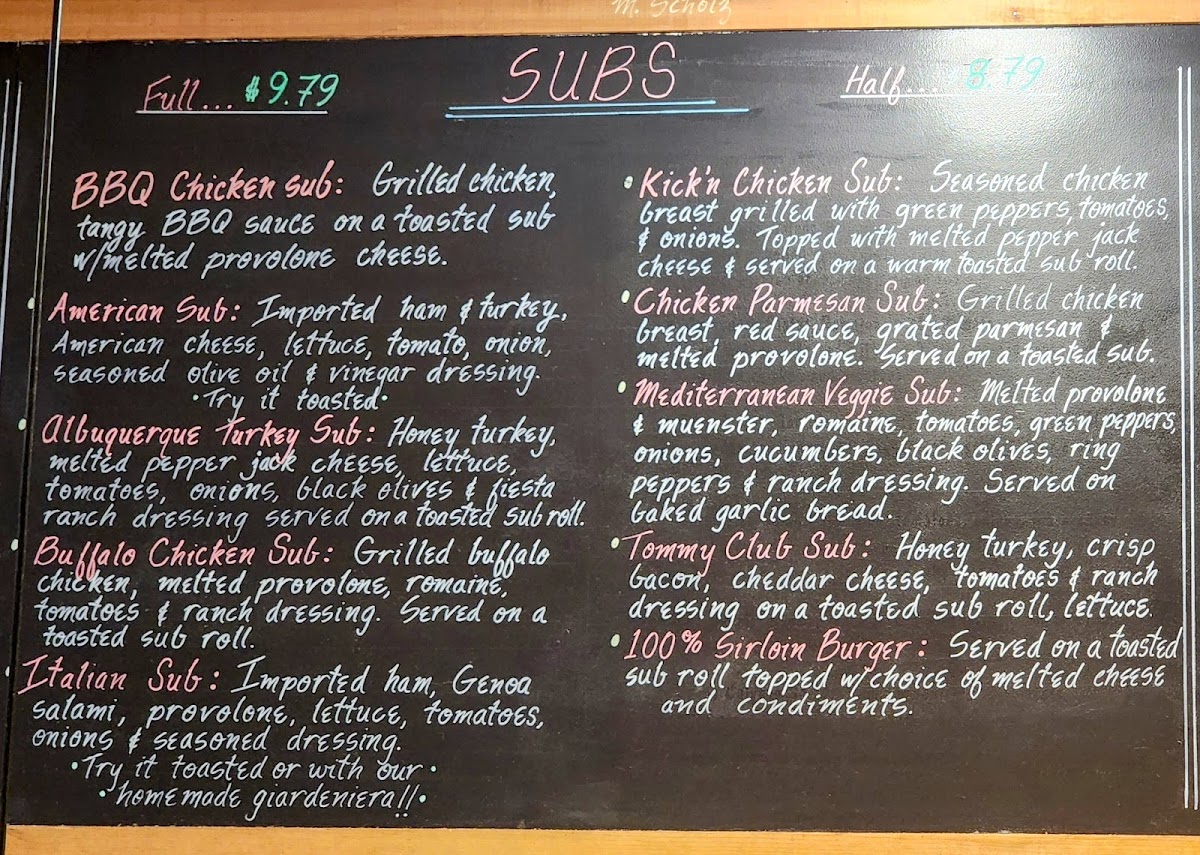 M. Scholz
SUBS
Full... $9.79
Half... 8.79
BBQ Chicken sub: Grilled chicken,
tangy BBQ sauce on a toasted sub
w/melted provolone cheese.
American Sub: Imported ham & turkey,
American cheese, lettuce, tomato, onion,
seasoned olive oil & vinegar dressing.
•Try it toasted•
Albuquerque Turkey Sub: Honey turkey,
melted pepper jack cheese, lettuce,
tomatoes, onions, black olives & fiesta
ranch dressing served on a toasted sub roll.
Buffalo Chicken Sub: Grilled buffalo
chicken, melted provolone, romaine,
tomatoes & ranch dressing. Served on a
toasted sub roll.
Italian Sub: Imported ham, Genoa
salami, provolone, lettuce, tomatoes,
onions & seasoned dressing.
•Try it toasted or with our•
•homemade giardeniera!!•
•Kick'n Chicken Sub: Seasoned chicken
breast grilled with green peppers, tomatoes,
& onions. Topped with melted pepper jack
cheese & served on a warm toasted sub roll.
•Chicken Parmesan Sub: Grilled chicken
breast, red sauce, grated parmesan &
melted provolone. Served on a toasted sub.
•Mediterranean Veggie Sub: Melted provolone
& muenster, romaine, tomatoes, green peppers,
onions, cucumbers, black olives, ring
peppers & ranch dressing. Served on
baked garlic bread.
•Tommy Club Sub: Honey turkey, crisp
bacon, cheddar cheese, tomatoes & ranch
dressing on a toasted sub roll, lettuce.
•100% Sirloin Burger: Served on a toasted
sub roll topped w/choice of melted cheese
and condiments.